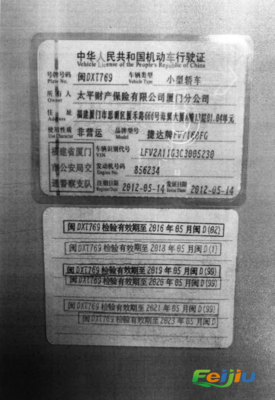 中华人民共和国机动车行驶证
Vehicle License of the People's Republic of China
号牌号码 闽DXT769 车辆类型 小型轿车
Plate No. Vehicle Type
所有人 太平财产保险有限公司厦门分公司
Owner
住址
Address
使用性质 非营运 品牌型号 捷达牌
Use Character Model
福建省厦门市公安局交通警察支队
车辆识别代号 LFV2A11G3C3085230
VIN
发动机号码 856234
Engine No.
注册日期 2012-05-14 发证日期 2012-05-14
Register Date Issue Date
闽DXT769 检验有效期至2016年05月闽D(02)
闽DXT769 检验有效期至2018年05月闽D(1)
闽DXT769 检验有效期至2019年05月闽D(99)
闽DXT769 检验有效期至2020年05月闽D(99)
闽DXT769 检验有效期至2021年05月闽D(99)
闽DXT769 检验有效期至2023年05月闽D(99)
Feijiu